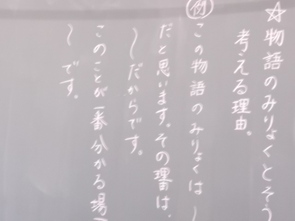 ☆物語のみりょくとそう
考える理由。
例 この物語のみりょくは〜
だと思います。その理由は、
〜だからです。
このことが一番分かる場
〜です。